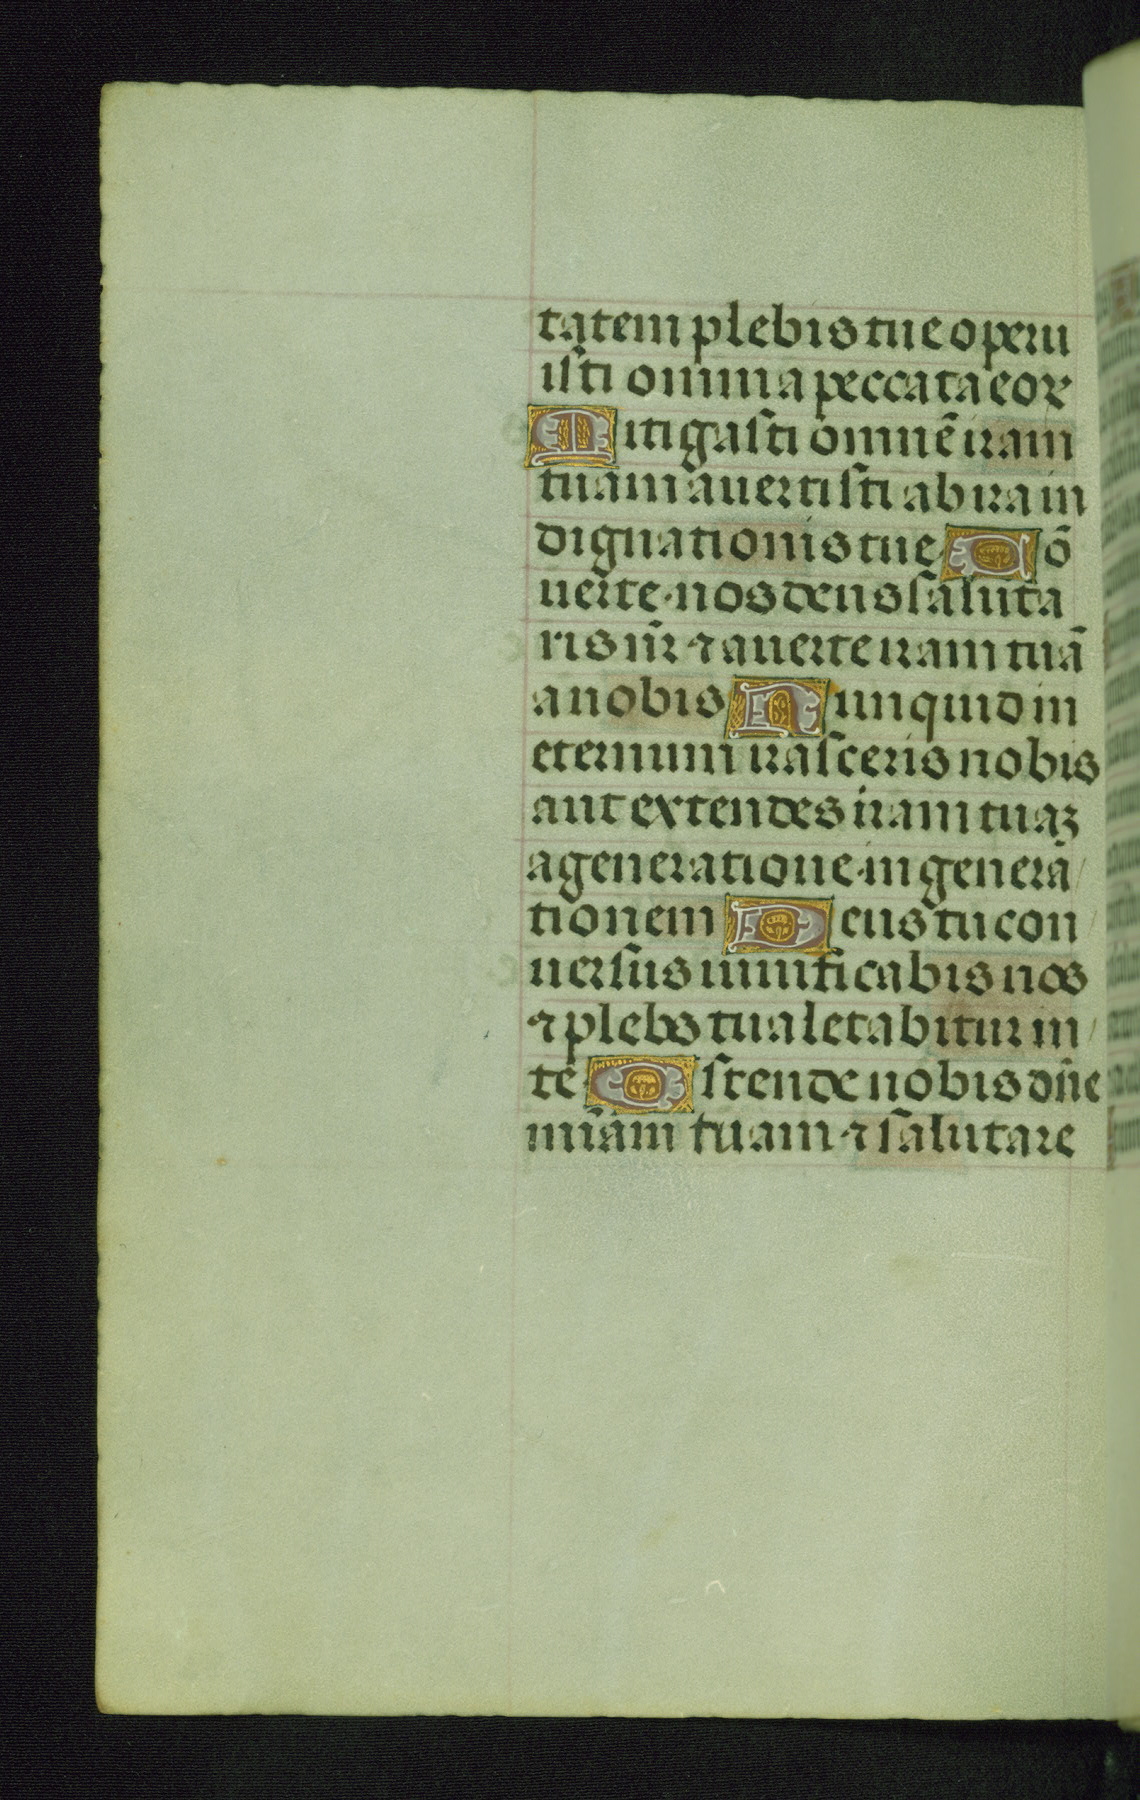 tatem plebis tue operu
isti omnia peccata eoꝝ
Mitigasti omnē iram
tuam auertisti ab ira in
dignationis tue Cō
uerte nos deus saluta
ris nr̄ ⁊ auerte iram tuā
a nobis Nunquid in
eternum irasceris nobis
aut extendes iram tuaꝫ
a generatione in genera
tionem Deus tu con
uersus uiuificabis nos
⁊ plebs tua letabitur in
te Ostende nobis dn̄e
mīam tuam ⁊ salutare